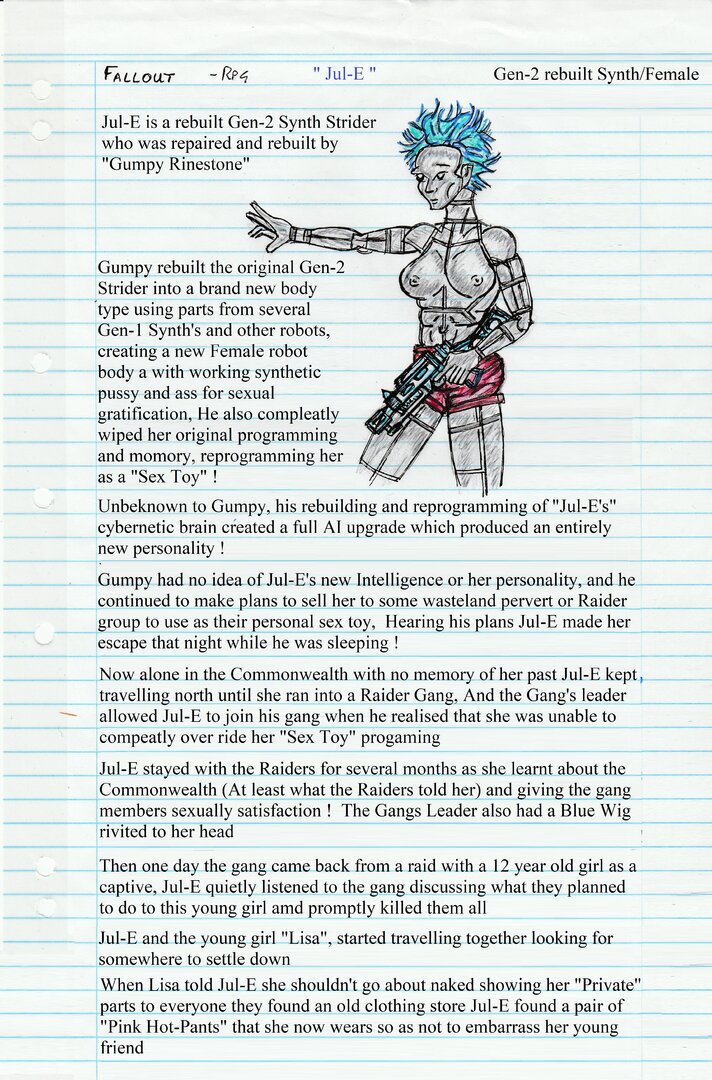 FALLOUT -RPG " Jul-E " Gen-2 rebuilt Synth/Female
Jul-E is a rebuilt Gen-2 Synth Strider
who was repaired and rebuilt by
"Gumpy Rinestone"
Gumpy rebuilt the original Gen-2
Strider into a brand new body
type using parts from several
Gen-1 Synth's and other robots,
creating a new Female robot
body a with working synthetic
pussy and ass for sexual
gratification, He also compleatly
wiped her original programming
and momory, reprogramming her
as a "Sex Toy" !
Unbeknown to Gumpy, his rebuilding and reprogramming of "Jul-E's"
cybernetic brain created a full AI upgrade which produced an entirely
new personality !
Gumpy had no idea of Jul-E's new Intelligence or her personality, and he
continued to make plans to sell her to some wasteland pervert or Raider
group to use as their personal sex toy, Hearing his plans Jul-E made her
escape that night while he was sleeping !
Now alone in the Commonwealth with no memory of her past Jul-E kept,
travelling north until she ran into a Raider Gang, And the Gang's leader
allowed Jul-E to join his gang when he realised that she was unable to
compeatly over ride her "Sex Toy" progaming
Jul-E stayed with the Raiders for several months as she learnt about the
Commonwealth (At least what the Raiders told her) and giving the gang
members sexually satisfaction ! The Gangs Leader also had a Blue Wig
rivited to her head
Then one day the gang came back from a raid with a 12 year old girl as a
captive, Jul-E quietly listened to the gang discussing what they planned
to do to this young girl amd promptly killed them all
Jul-E and the young girl "Lisa", started travelling together looking for
somewhere to settle down
When Lisa told Jul-E she shouldn't go about naked showing her "Private"
parts to everyone they found an old clothing store Jul-E found a pair of
"Pink Hot-Pants" that she now wears so as not to embarrass her young
friend